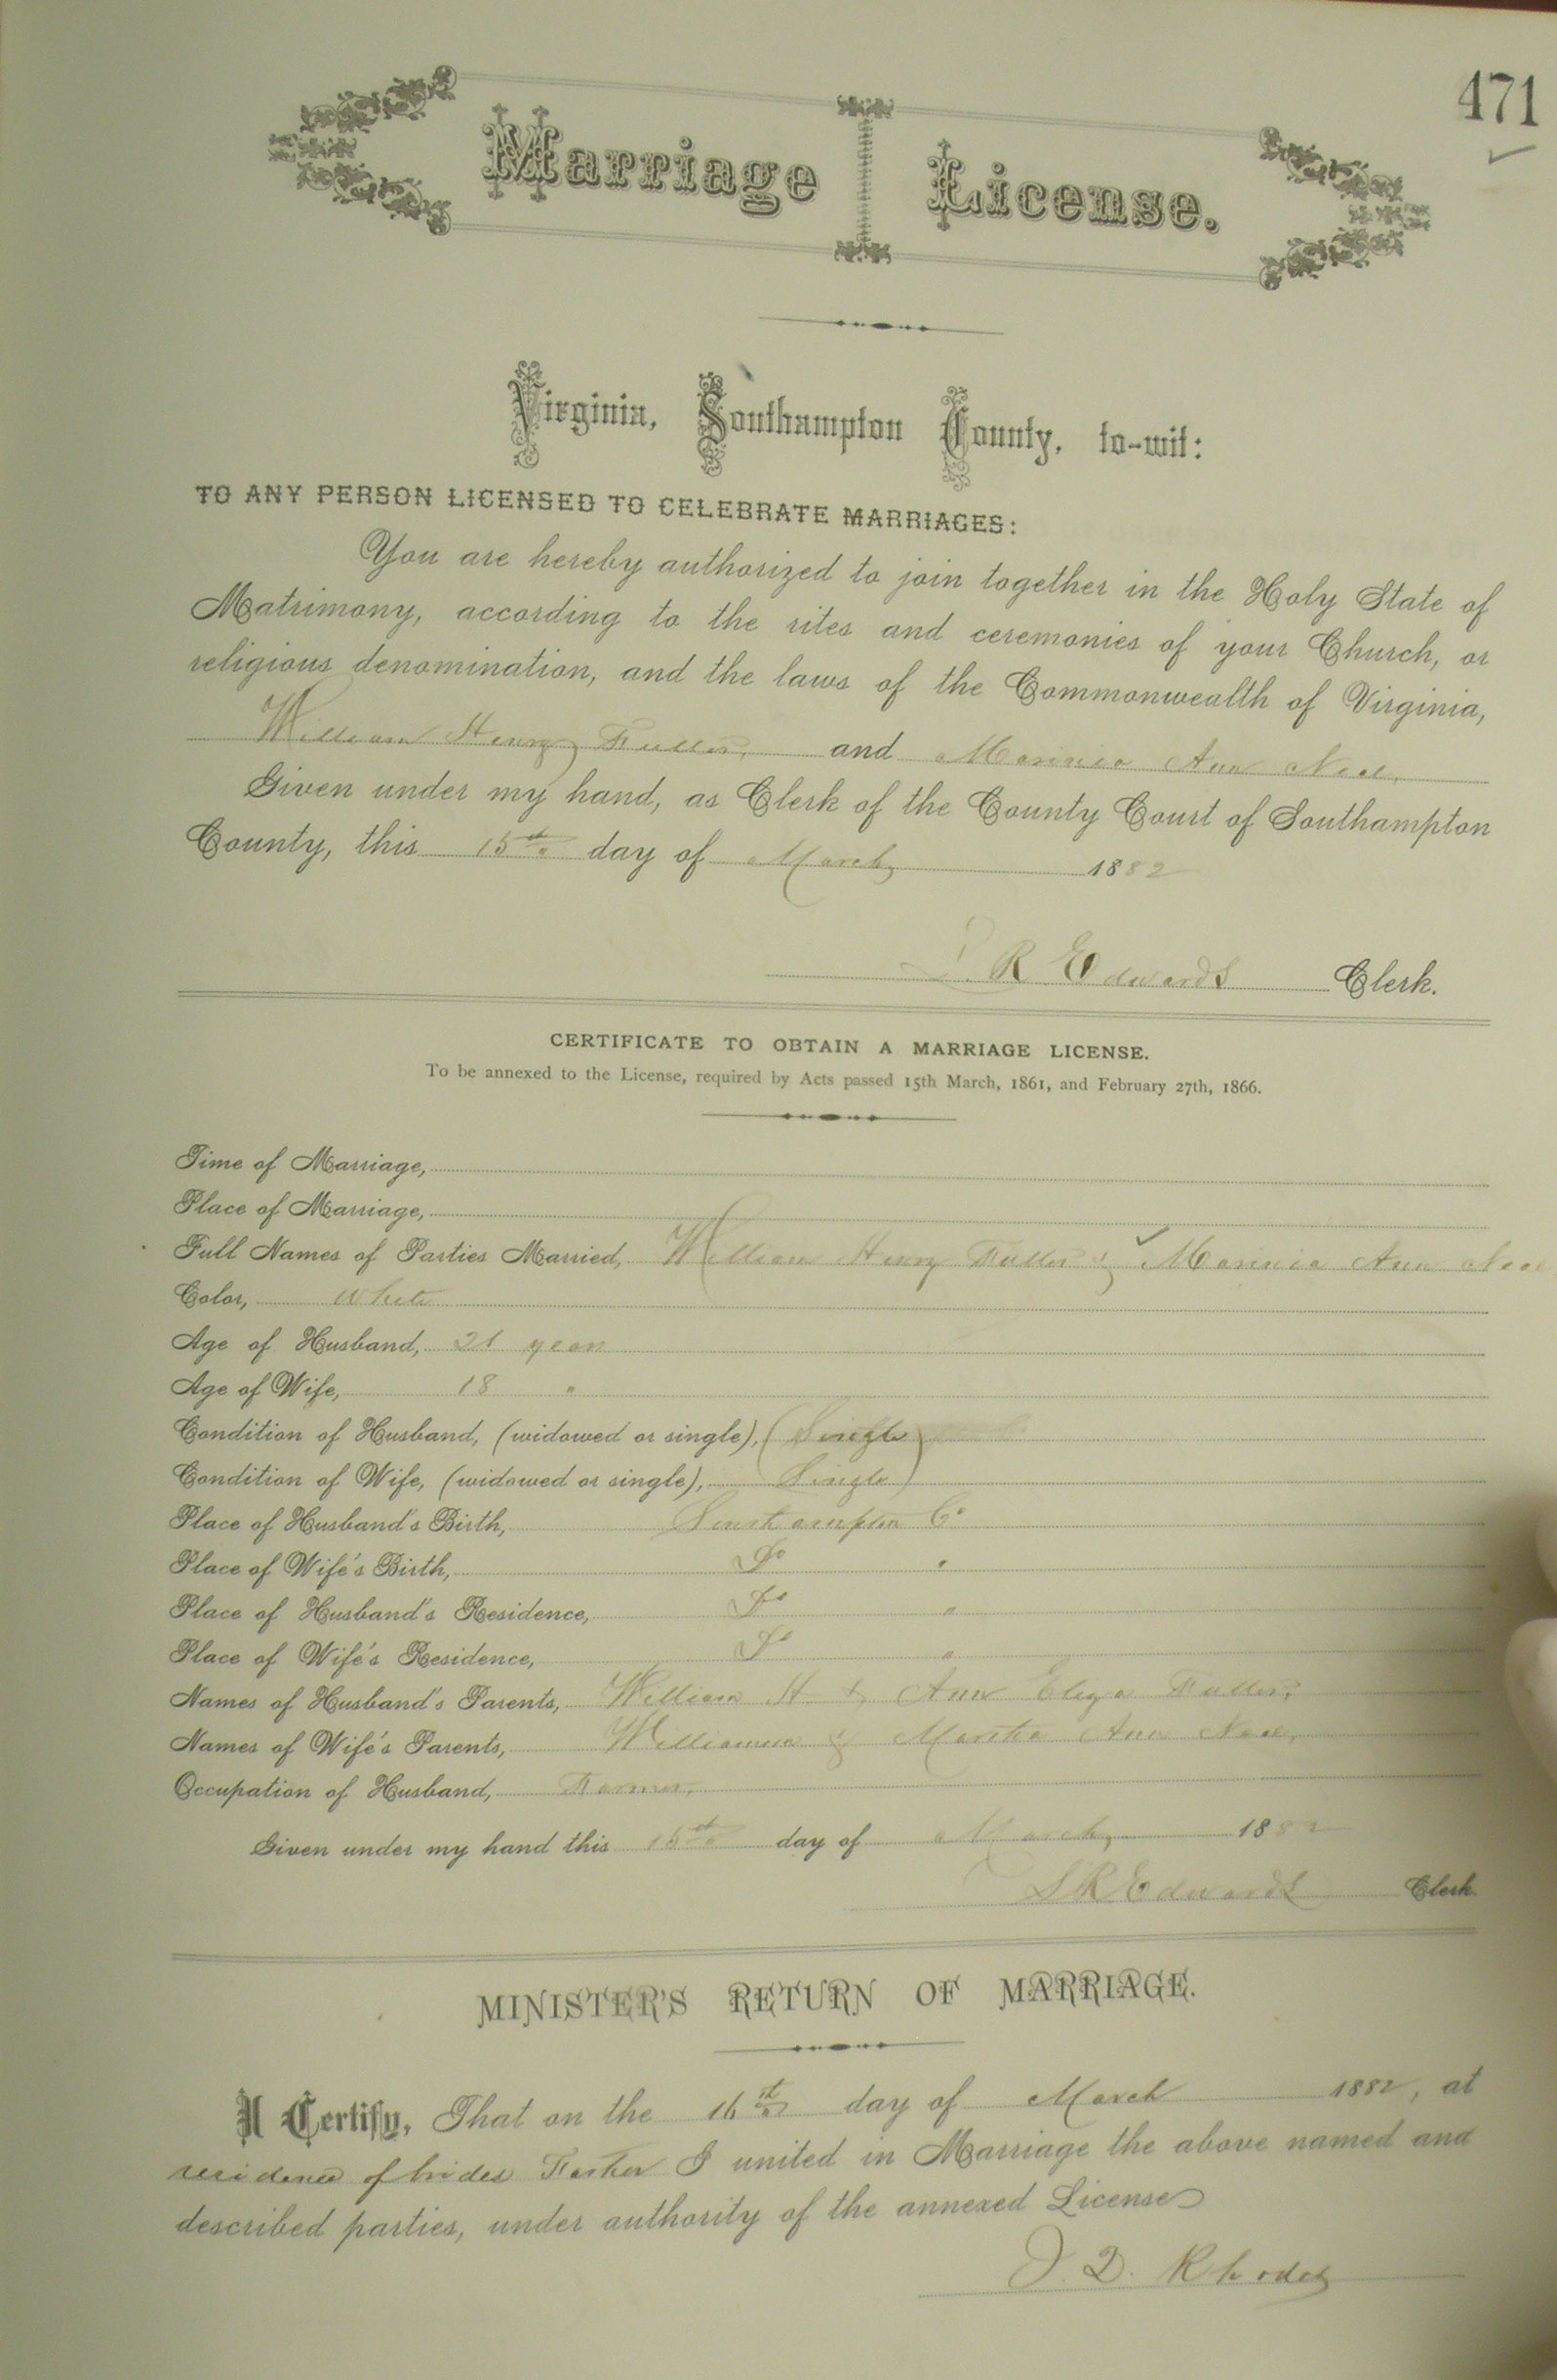 471
Marriage License.
Virginia, Southampton County, to-wit:
TO ANY PERSON LICENSED TO CELEBRATE MARRIAGES:
You are hereby authorized to join together in the Holy State of
Matrimony, according to the rites and ceremonies of your Church, or
religious denomination, and the laws of the Commonwealth of Virginia,
William Henry Fuller, and Ann
Given under my hand, as Clerk of the County Court of Southampton
County, this 15th day of March 1882
R Edwards Clerk.
CERTIFICATE TO OBTAIN A MARRIAGE LICENSE.
To be annexed to the License, required by Acts passed 15th March, 1861, and February 27th, 1866.
Time of Marriage,
Place of Marriage,
Full Names of Parties Married, William Henry Fuller & Ann
Color, White
Age of Husband, 21 years
Age of Wife, 18 "
Condition of Husband, (widowed or single), (Single)
Condition of Wife, (widowed or single), Single
Place of Husband's Birth, Southampton Co
Place of Wife's Birth, Do "
Place of Husband's Residence, Do "
Place of Wife's Residence, Do "
Names of Husband's Parents, William H & Ann Eliza Fuller,
Names of Wife's Parents, & Martha Ann
Occupation of Husband, Farmer,
Given under my hand this 15th day of March 1882
R Edwards Clerk.
MINISTER'S RETURN OF MARRIAGE.
I Certify, That on the 16th day of March 1882, at
residence of brides Father I united in Marriage the above named and
described parties, under authority of the annexed License
J. D. Rhodes